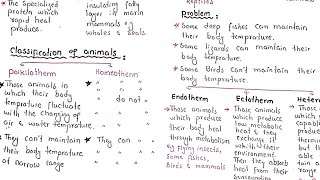 ★ The Specialized
protein which
rapid heat
produce.
insulating fatty
layer ; if marin
mammals e.g
whales & seals
Classification of animals:
poikilotherm
★ Those animals in
which their body
temprature fluctuate
with the changing of
air & water temprature.
★ They can't maintain
their body temprature
of narrow range
Homeotherm
★ " "
" do not "
" "
" "
★ They can "
" "
Reptiles
Problem :
★ Some deep fishes can maintain
their body temprature.
★ Some lizards can maintain
their body temprature.
★ Some Birds can't maintain
their body temprature.
Endotherm
★ Those animals
which produce
their body
heat through
metabolism
e.g flying insects,
Some fishes,
Birds & mammals
Ectotherm
★ Those animals
which produce
low metabolic
heat & they
exchange it
with their
environment.
Then they absorb
heat from their
Surrounding
Heter
★ Those
which
can